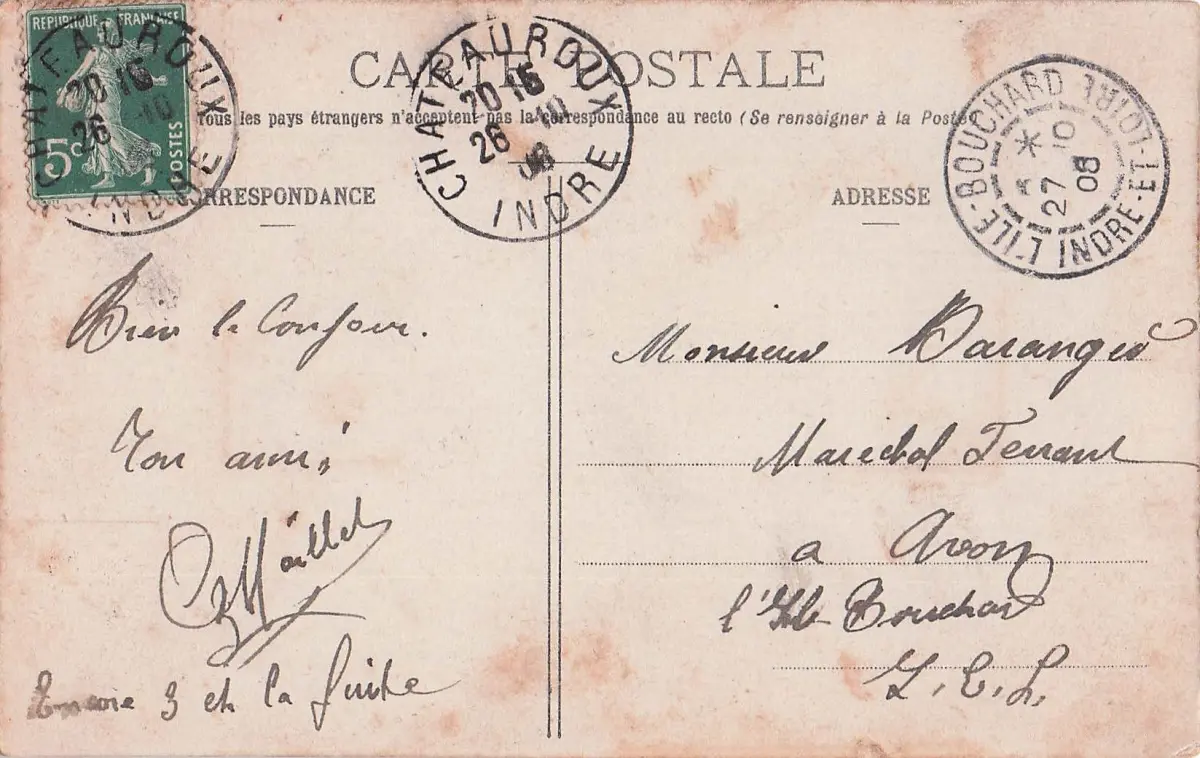 REPUBLIQUE FRANÇAISE
5c POSTES
CHATEAUROUX
20 15
26 -10
INDRE
CARTE POSTALE
CHATEAUROUX
20 15
26 -10
08
INDRE
L'ILE-BOUCHARD
27 10
08
INDRE-ET-LOIRE
Tous les pays étrangers n'acceptent pas la correspondance au recto (Se renseigner à la Poste)
CORRESPONDANCE
ADRESSE
Bien le Conjour.
Ton ami
Maillet
Encore 3 et la fuite
Monsieur Baranger
Marechal Ferrant
a Avon
l'Ile Bouchard
I. E. L.